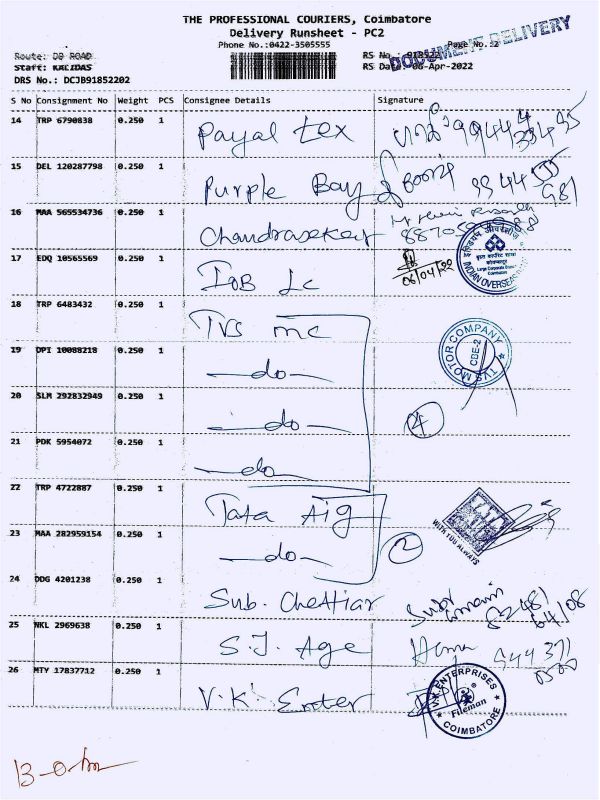 THE PROFESSIONAL COURIERS, Coimbatore
Delivery Runsheet - PC2
Phone No.:0422-3505555
Page No.:2
DOCUMENT DELIVERY
Route: DB ROAD
RS No.: 918522
Staff: KALIDAS
RS Date: 06-Apr-2022
DRS No.: DCJB91852202
S No Consignment No Weight PCS Consignee Details Signature
14 TRP 6790838 0.250 1 Payal tex
15 DEL 120287798 0.250 1 Purple Bay
16 MAA 565534736 0.250 1 Chandrasekar
17 EDQ 10565569 0.250 1 IOB Lc 06/04/22
INDIAN OVERSEAS
18 TRP 6483432 0.250 1 TVS mc
19 DPI 10088218 0.250 1 -do-
TVS MOTOR COMPANY
CBE-2
20 SLM 292832949 0.250 1 -do- 4
21 PDK 5954072 0.250 1 -do-
22 TRP 4722887 0.250 1 Tata Aig
WITH YOU ALWAYS
23 MAA 282959154 0.250 1 -do- 2
24 DDG 4201238 0.250 1 Sub. Chettiar
25 NKL 2969638 0.250 1 S.J. Age
26 MTY 17837712 0.250 1 V.K. Enter
V.K ENTERPRISES
Fileman
COIMBATORE